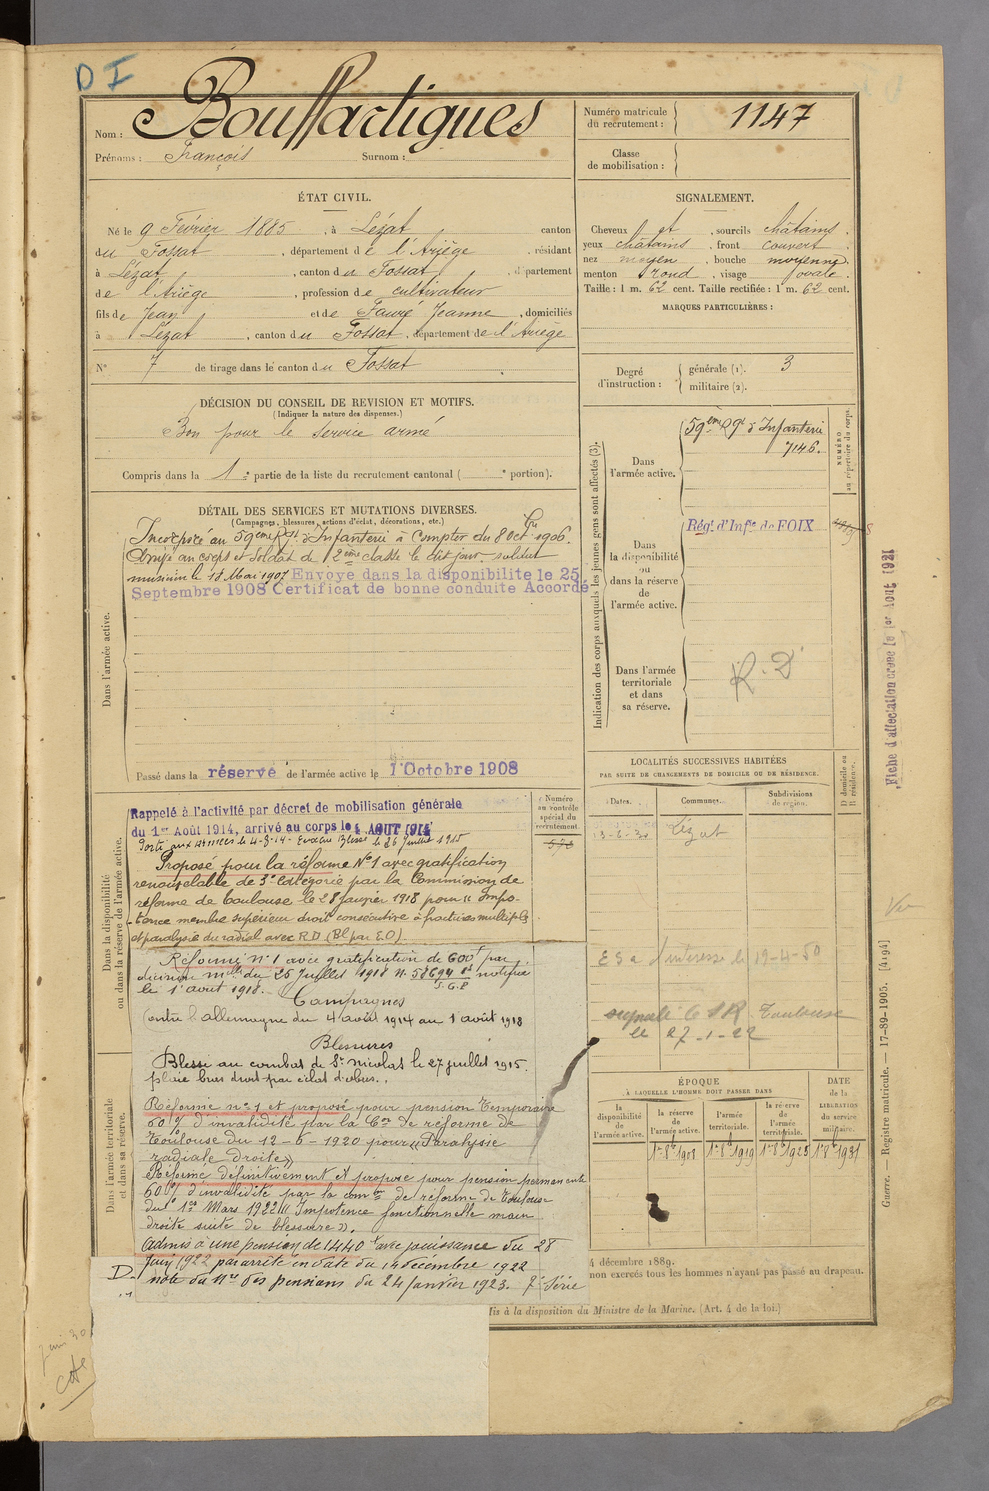 D I
Nom : Bouffartigues
Prénoms : François Surnom :
Numéro matricule du recrutement : 1147
Classe de mobilisation :
ÉTAT CIVIL.
Né le 9 Février 1885, à Lézat canton
du Fossat, département de l'Ariège, résidant
à Lézat, canton du Fossat, département
de l'Ariège, profession de cultivateur
fils de Jean et de Fauré Jeanne, domiciliés
à Lézat, canton du Fossat, département de l'Ariège
N° 7 de tirage dans le canton du Fossat
SIGNALEMENT.
Cheveux et, sourcils châtains.
yeux châtains, front couvert.
nez moyen, bouche moyenne.
menton rond, visage ovale.
Taille : 1 m. 62 cent. Taille rectifiée : 1 m. 62 cent.
MARQUES PARTICULIÈRES :
Degré d'instruction : générale (1). 3
militaire (2).
DÉCISION DU CONSEIL DE REVISION ET MOTIFS.
(Indiquer la nature des dispenses.)
Bon pour le service armé
Compris dans la 1re partie de la liste du recrutement cantonal ( e portion).
DÉTAIL DES SERVICES ET MUTATIONS DIVERSES.
(Campagnes, blessures, actions d'éclat, décorations, etc.)
Dans l'armée active.
Incorporé au 59ème Rgt d'Infanterie à compter du 8 Octbre 1906.
Arrivé au corps et soldat de 2ème classe le dit jour. soldat
musicien le 12 Mai 1907 Envoyé dans la disponibilité le 25
Septembre 1908 Certificat de bonne conduite Accordé
Passé dans la réserve de l'armée active le 1 Octobre 1908
Indication des corps auxquels les jeunes gens sont affectés (3).
NUMÉRO au répertoire du corps.
Dans l'armée active.
59ème Rgt d'Infanterie
7146.
Dans la disponibilité ou dans la réserve de l'armée active.
Régt d'Infie de FOIX
Dans l'armée territoriale et dans sa réserve.
R. D
Fiche d'affectation créée le 1er Août 1921
LOCALITÉS SUCCESSIVES HABITÉES
PAR SUITE DE CHANGEMENTS DE DOMICILE OU DE RÉSIDENCE.
Dates. Communes. Subdivisions de région. D domicile ou R résidence.
13-2-30 Lézat
l'intéressé le 19-4-50
signalé le SR Toulouse
le 27-1-22
Dans la disponibilité ou dans la réserve de l'armée active.
Numéro au contrôle spécial du recrutement.
Rappelé à l'activité par décret de mobilisation générale
du 1er Août 1914, arrivé au corps le 4 AOUT 1914
Parti aux armées le 4-8-14. Evacué Blessé le 26 juillet 1915
Proposé pour la réforme N°1 avec gratification
renouvelable de 3e catégorie par la Commission de
réforme de Toulouse le 28 janvier 1918 pour "Impo-
tence membre supérieur droit consécutive à fractures multiples
et paralysie du radial avec RD (Bl par E.O)
Réformé n°1 avec gratification de 600f par
décision mlle du 25 Juillet 1918 n° 58694 notifiée
le 1 août 1918.
S.G.P
Campagnes
Contre l'allemagne du 4 août 1914 au 1 août 1918
Blessures
Blessé au combat de St Nicolas le 27 juillet 1915.
plaie bras droit par éclat d'obus.
Dans l'armée territoriale et dans sa réserve.
Réformé n°1 et proposé pour pension temporaire
60% d'invalidité par la Con de réforme de
Toulouse du 12-6-1920 pour "Paralysie
radiale droite"
Réformé définitivement et proposé pour pension permanente
60% d'invalidité par la com de réforme de Toulouse
du 1er Mars 1922 "Impotence fonctionnelle main
droite suite de blessure".
Admis à une pension de 1440 f avec jouissance du 28
Juin 1922 par arrêté en date du 14 décembre 1922
note du Mre des pensions du 24 Janvier 1923.
D.
ÉPOQUE
À LAQUELLE L'HOMME DOIT PASSER DANS
la disponibilité de l'armée active. la réserve de l'armée active. l'armée territoriale. la réserve de l'armée territoriale.
DATE de la LIBÉRATION du service militaire.
1er 8b 1908 1er 8b 1919 1er 8b 1925 1er 8b 1931
4 décembre 1889.
non exercés tous les hommes n'ayant pas passé au drapeau.
Mis à la disposition du Ministre de la Marine. (Art. 4 de la loi.)
Guerre. — Registre matricule. — 17-89-1905. [4194]